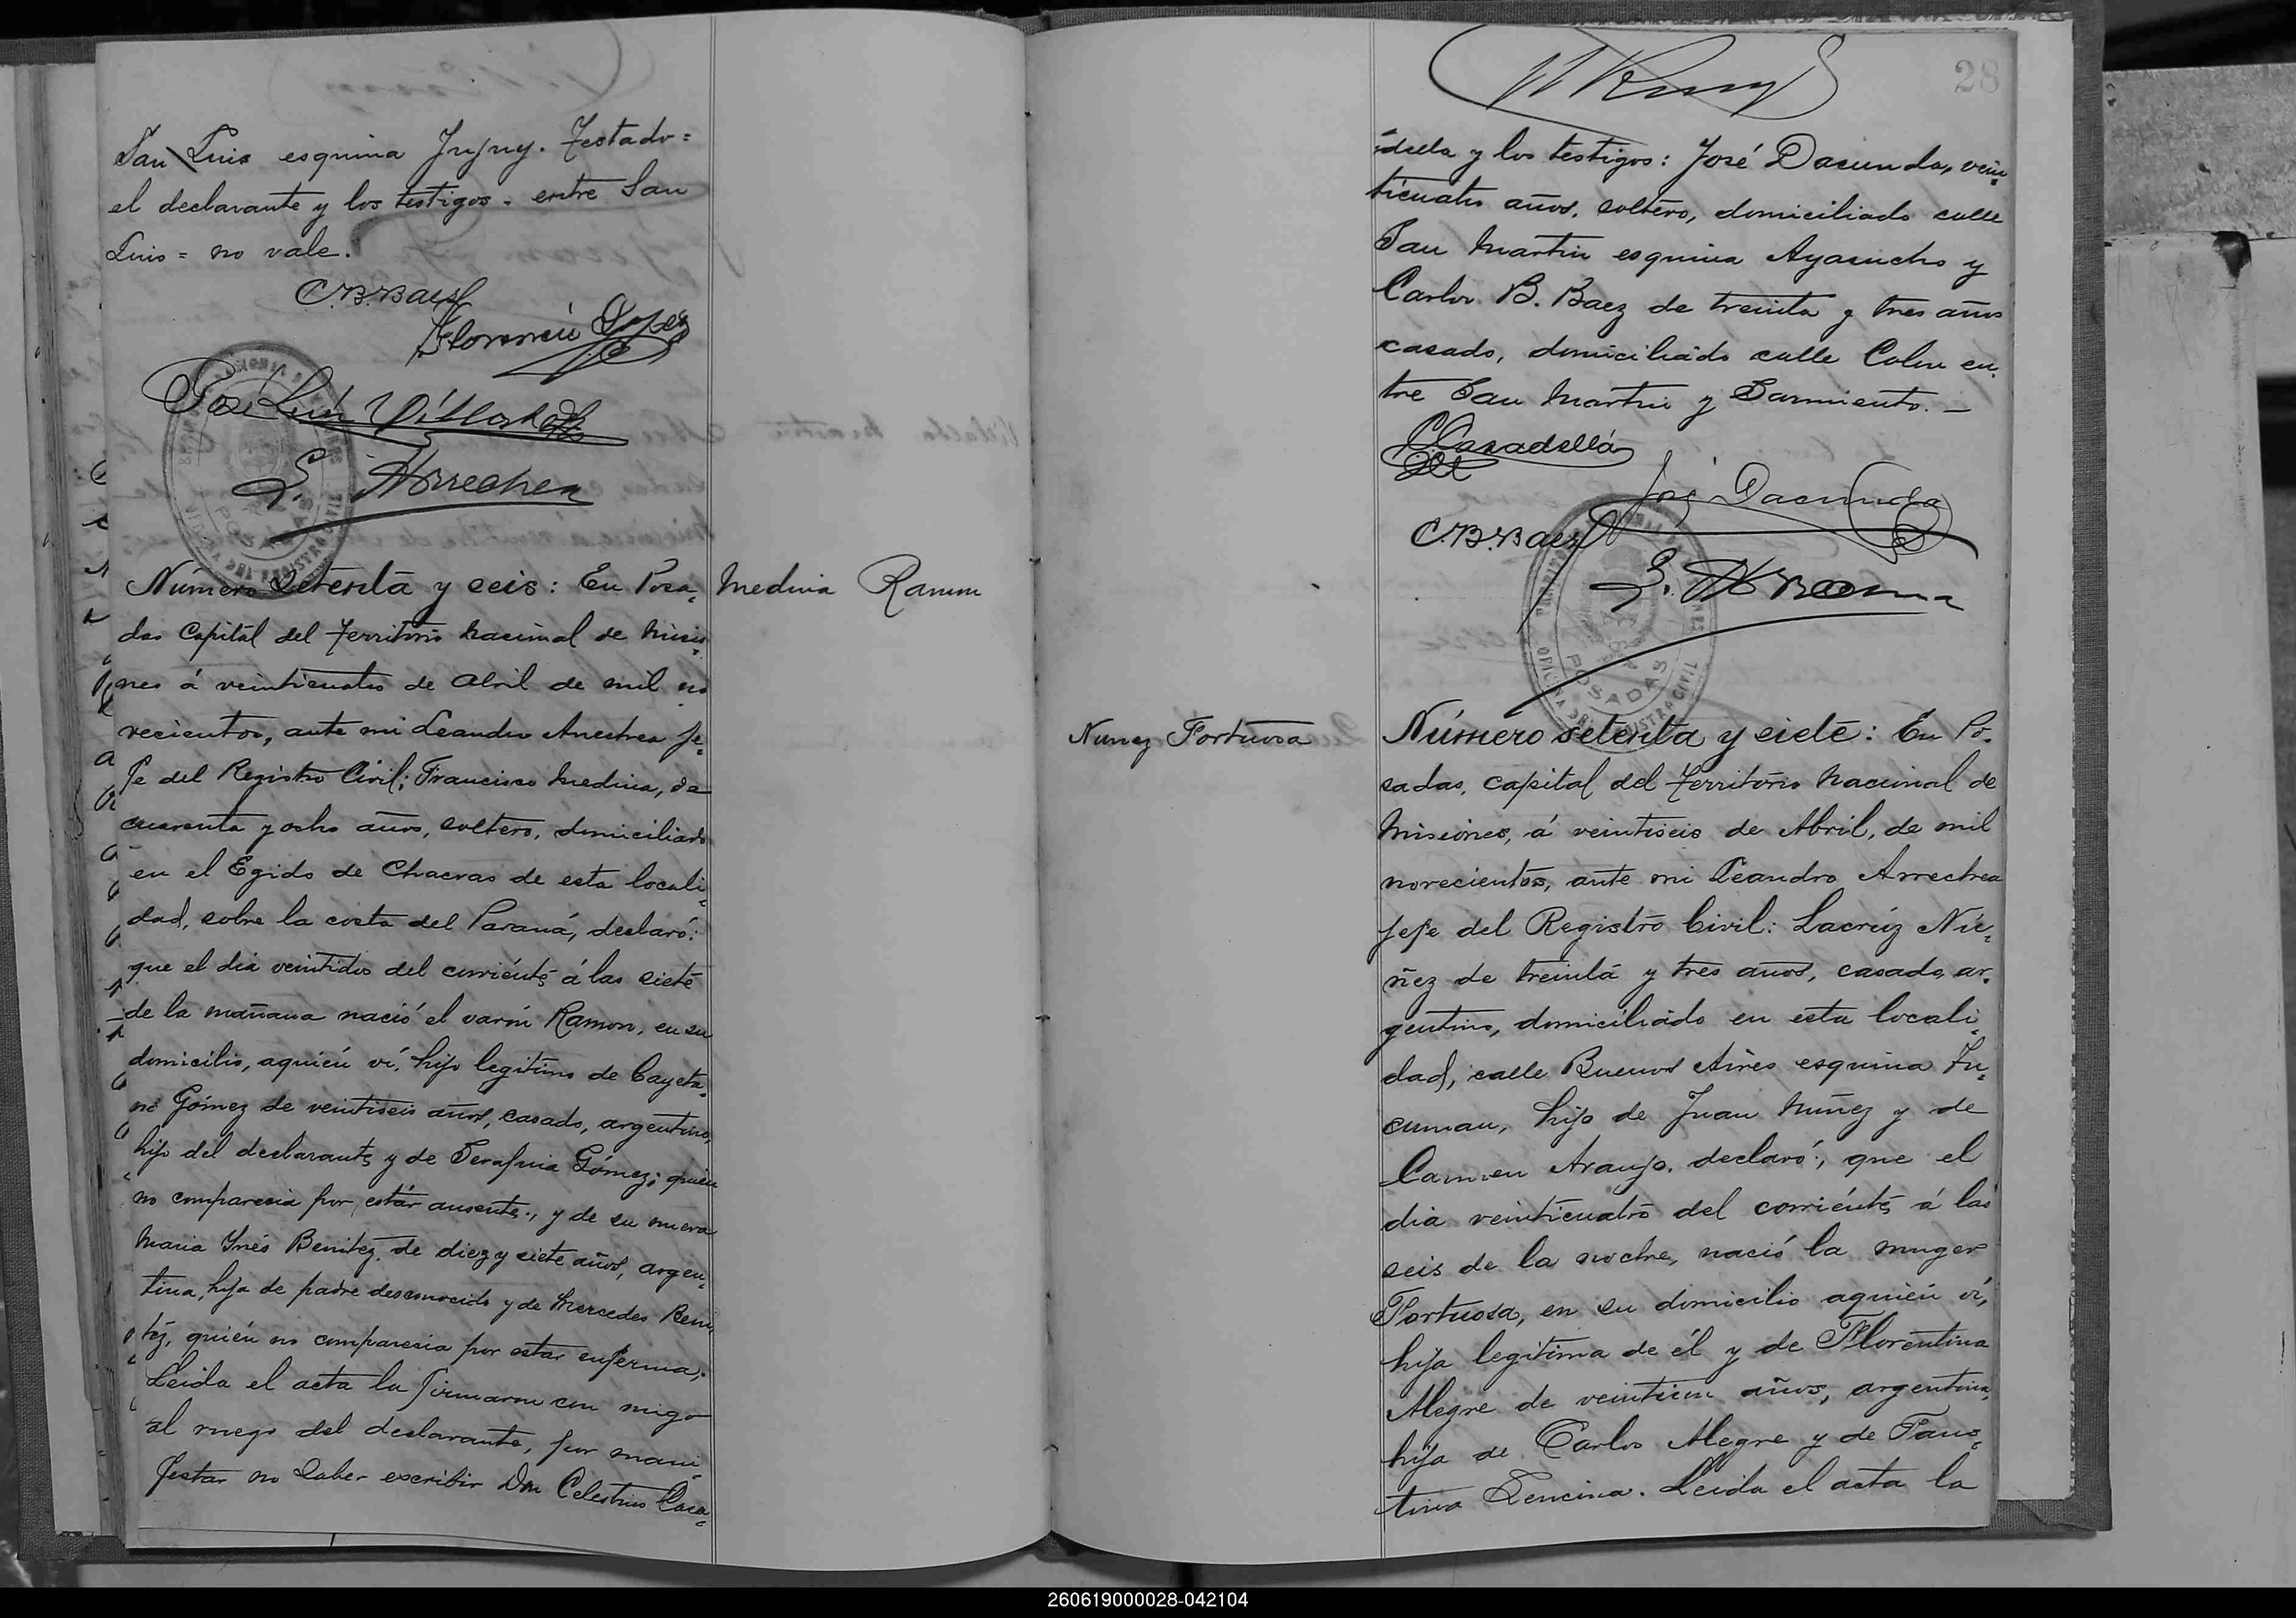 San Luis esquina Jujuy. Testado=
el declarante y los testigos. entre San
Luis = no vale.
C.B.Baez
Florencio Lopez
José León Villalba
L. Arrechea
Número setenta y seis: En Posa=
das Capital del Territorio Nacional de Misio=
nes á veinticuatro de Abril de mil no
vecientos, ante mi Leandro Arrechea Je=
fe del Registro Civil; Francisco Medina, de
cuarenta y ocho años, soltero, domiciliado
en el Egido de Chacras de esta locali=
dad, sobre la costa del Paraná, declaró:
que el dia veintidos del corriente á las siete
de la mañana nació el varón Ramon, en su
domicilio, aquién ví, hijo legitimo de Cayeta=
no Gómez de veintiseis años, casado, argentino,
hijo del declarante y de Serafina Gómez; quien
no comparecia por estár ausente., y de su nuera
Maria Ynés Benitez de diez y siete años, argen=
tina, hija de padre desconocido y de Mercedes Beni=
téz, quién no comparecia por estar enferma;
Leida el acta la firmaron con migo
al ruego del declarante, por mani
festar no saber escribir Don Celestino Casa=
Medina Ramon
28
=della y los testigos: José Dacunda, vein=
ticuatro años, soltero, domiciliado calle
San Martin esquina Ayacucho y
Carlos B. Baez de treinta y tres años
casado, domiciliado calle Colon en=
tre San Martin y Sarmiento. —
C. Casadellá
José Dacunda
C.B.Baez
L. Arrechea
POSADAS
OFICINA DEL REGISTRO CIVIL
Nunez Fortuosa
Número setenta y siete: En Po=
sadas, capital del Territorio Nacional de
Misiones, á veintiseis de Abril, de mil
novecientos, ante mi Leandro Arrechea
Jefe del Registro Civil: Lacrúz Nú=
ñez de treinta y tres años, casado, ar=
gentino, domiciliado en esta locali=
dad, calle Buenos Aires esquina Tu=
cuman, hijo de Juan Nuñez y de
Carmen Araujo, declaró; que el
dia veinticuatro del corriente á las
seis de la noche, nació la muger
Fortuosa, en su domicilio aquién ví,
hija legitima de él y de Florentina
Alegre de veintiun años, argentina,
hija de Carlos Alegre y de Faus=
tina Lencina. Leida el acta la
260619000028-042104